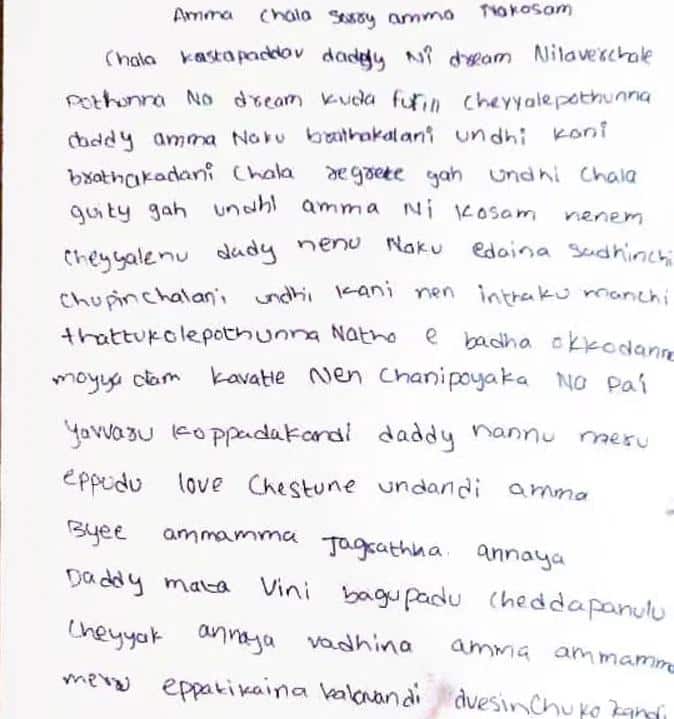 Amma chala sorry amma Nakosam
Chala kastapaddav daddy Ni dream Nilaverchale
pothunna No dream kuda fufill cheyyalepothunna
daddy amma Naku brathakalani undhi kani
brathakadani chala regrete gah undhi chala
guity gah undhi amma Ni kosam nenem
cheyyalenu dady nenu Naku edaina sadhinchi
chupinchalani undhi kani nen intraku manchi
thattukolepothunna Natho e badha okkodanne
moyya ctam kavatle Nen chanipoyaka No pai
yavvaru koppadakandi daddy nannu meru
eppudu love chestune undandi amma
Byee ammamma Jagrathha. annaya
Daddy mata vini bagupadu cheddapanulu
cheyyak annaya vadhina amma ammamma
meru eppatikaina kalavandi dvesinchukokandi